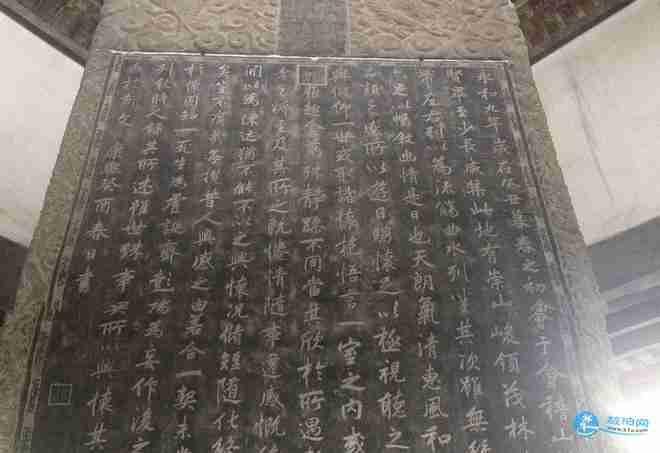 永和九年歲在癸丑暮春之初會于會稽山
賢畢至少長咸集此地有崇山峻領茂林
帶左右引以為流觴曲水列坐其次雖無
足以暢敘幽情是日也天朗氣清惠風和
品類之盛所以遊目騁懷足以極視聽之
與俯仰一世或取諸懷抱悟言一室之內或
趣舍萬殊靜躁不同當其欣於所遇
老之將至及其所之既惓情隨事遷感慨
間以為陳迹猶不能不以之興懷況脩短隨化終
矣豈不痛哉每攬昔人興感之由若合一契未
於懷固知一死生為虛誕齊彭殤為妄作後之
列敘時人錄其所述雖世殊事異所以興懷其
於斯文 康熙癸酉春日書